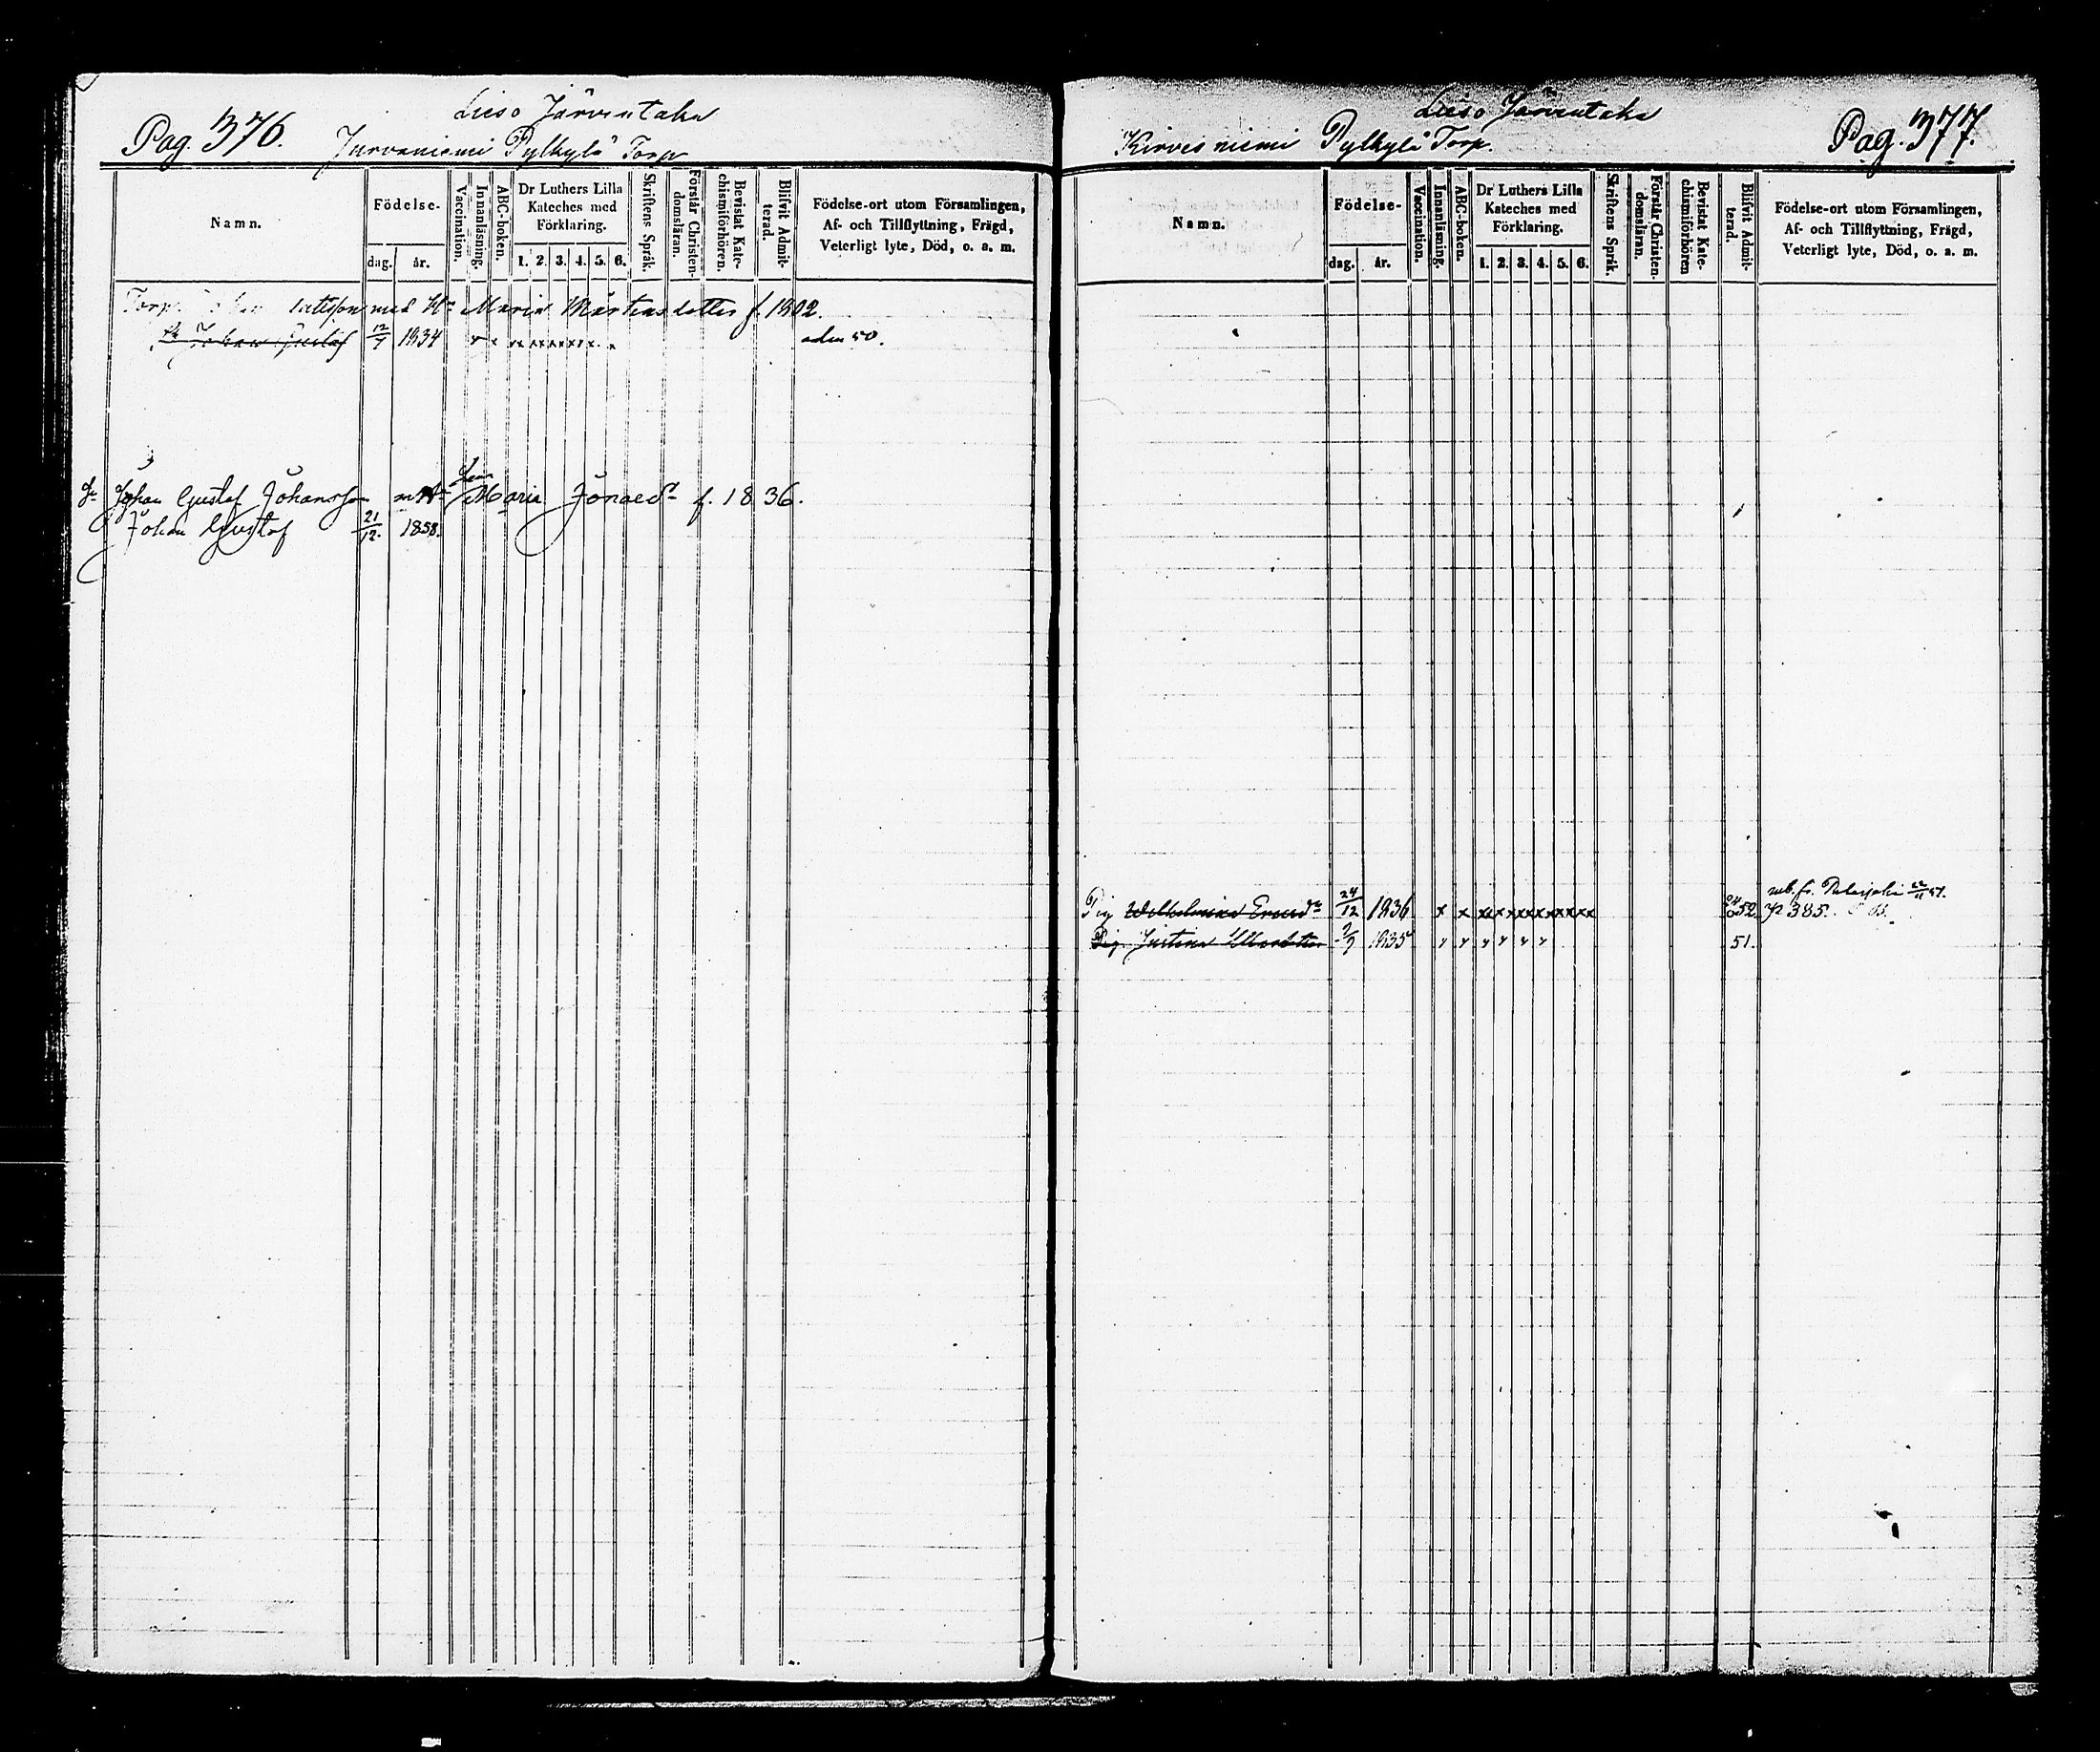 Pag. 376.
Lieso Järventaka
Jurvaniemi Pylkylä Torp
Namn.
Födelse-
dag.
år.
Vaccination.
Innanläsning.
ABC-boken.
Dr Luthers Lilla
Kateches med
Förklaring.
1. 2. 3. 4. 5. 6.
Skriftens Språk.
Förstår Christen-
domsläran.
Bevistat Kate-
chismiförhören.
Blifvit Admit-
terad.
Födelse-ort utom Församlingen,
Af- och Tillflyttning, Frägd,
Veterligt lyte, Död, o. a. m.
Torp. med Hu Maria Mårtensdotter f. 1802.
Johan Gustaf 12/7 1834 x x xx xx xx xx x. x 50.
Johan Gustaf Johansson m H Maria Jonaed. f. 1836.
Johan Gustaf 21/12. 1858.
Lieso Järventaka
Kirvesniemi Pylkylä Torp.
Pag. 377.
Namn.
Födelse-
dag.
år.
Vaccination.
Innanläsning.
ABC-boken.
Dr Luthers Lilla
Kateches med
Förklaring.
1. 2. 3. 4. 5. 6.
Skriftens Språk.
Förstår Christen-
domsläran.
Bevistat Kate-
chismiförhören
Blifvit Admit-
terad.
Födelse-ort utom Församlingen,
Af- och Tillflyttning, Frägd,
Veterligt lyte, Död, o. a. m.
Pig Wilhelmina 24/12 1836 x x xx xx xx xx xx xx 52. p 385.
Pig. Justina 1835 x x x x x x 51.